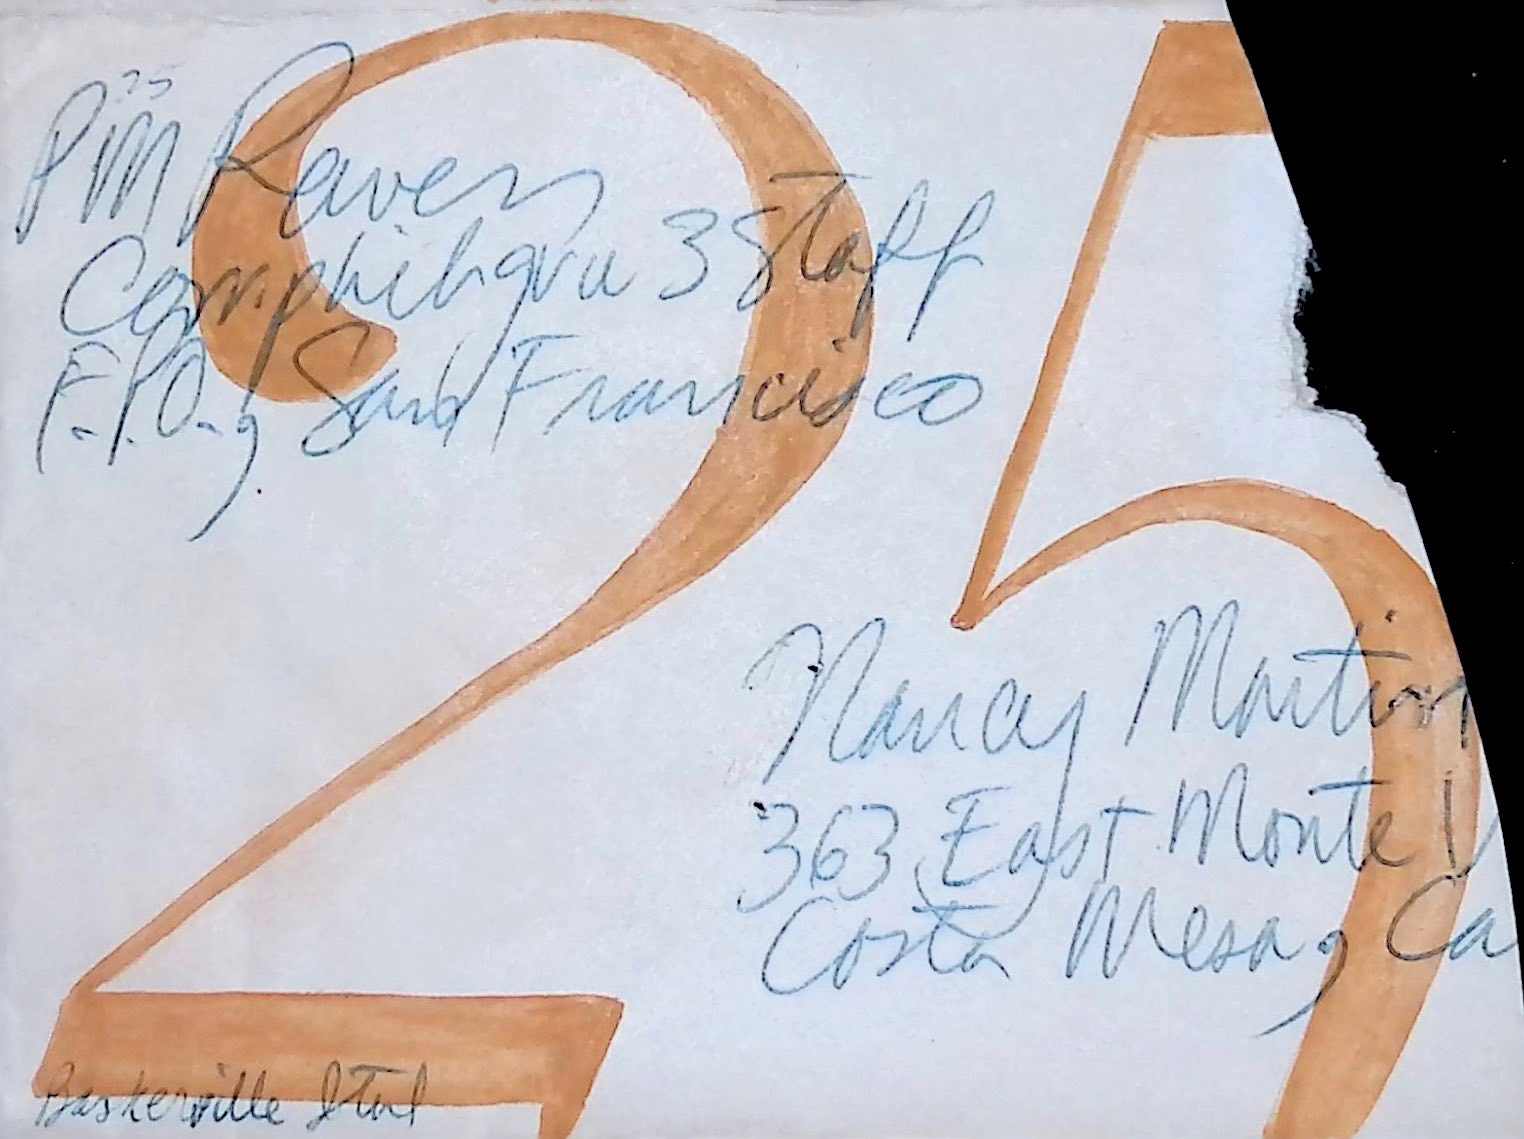 25
Pim Raven
Comphibgru 3 Staff
F.P.O., San Francisco
Nancy Martin
363 East Monte V
Costa Mesa, Ca
Baskerville Ital